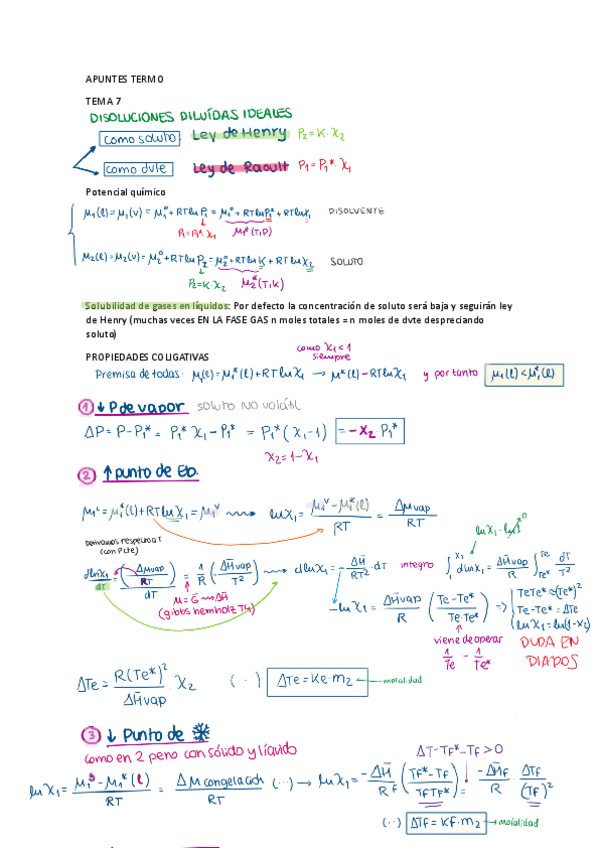 APUNTES TERMO
TEMA 7
DISOLUCIONES DILUÍDAS IDEALES
como soluto Ley de Henry P₂=K·X₂
como dvte Ley de Raoult P₁=P₁*X₁
Potencial químico
μ₁(l)=μ₁(v)=μ₁°+RTlnP₁=μ₁°+RTlnP₁*+RTlnX₁ DISOLVENTE
P₁=P₁*·X₁ μ₁*(T,P)
μ₂(l)=μ₂(v)=μ₂°+RTlnP₂=μ₂°+RTlnK+RTlnX₂ SOLUTO
P₂=K·X₂ μ₂*(T,K)
Solubilidad de gases en líquidos: Por defecto la concentración de soluto será baja y seguirán ley
de Henry (muchas veces EN LA FASE GAS n moles totales = n moles de dvte despreciando
soluto)
como X₁<1
siempre
PROPIEDADES COLIGATIVAS
Premisa de todas: μ₁(l)=μ₁*(l)+RTlnX₁ → μ*(l)-RTlnX₁ y por tanto μ₁(l)<μ₁*(l)
① ↓P de vapor soluto NO volátil
ΔP=P-P₁*=P₁*X₁-P₁* = P₁*(X₁-1) =-X₂P₁*
X₂=1-X₁
② ↑punto de Eb.
μ₁ᴸ=μ₁*(l)+RTlnX₁=μ₁ᵛ → lnX₁= (μ₁ᵛ-μ₁*(l))/RT = Δμvap/RT
lnX₁-ln1 0
Derivamos respecto a T
(con P cte)
dlnX₁/dT = (Δμvap/RT)/dT = 1/R (ΔH̄vap/T²) → dlnX₁=-ΔH̄/RT²·dT integro ∫₁^X₁ dlnX₁= ΔH̄vap/R ∫_Te*^Te dT/T²
μ=G→ΔH
(gibbs hemholz T4)
-lnX₁= ΔH̄vap/R (Te-Te*/Te·Te*) => TeTe*≈(Te*)²
Te-Te*=ΔTe
lnX₁=ln(1-X₂)
viene de operar
1/Te - 1/Te*
DUDA EN
DIAPOS
ΔTe= R(Te*)²/ΔH̄vap · X₂ (··) ΔTe=Ke·m₂ ← molalidad
③ ↓ Punto de ❄
como en 2 pero con sólido y líquido
ΔT=Tf*-Tf>0
lnX₁= (μ₁ˢ-μ₁*(l))/RT = Δμcongelación/RT (···) → lnX₁= -ΔH̄f/R (Tf*-Tf/TfTf*) = -ΔH̄f/R ΔTf/(Tf)²
(··) ΔTf=Kf·m₂ → molalidad